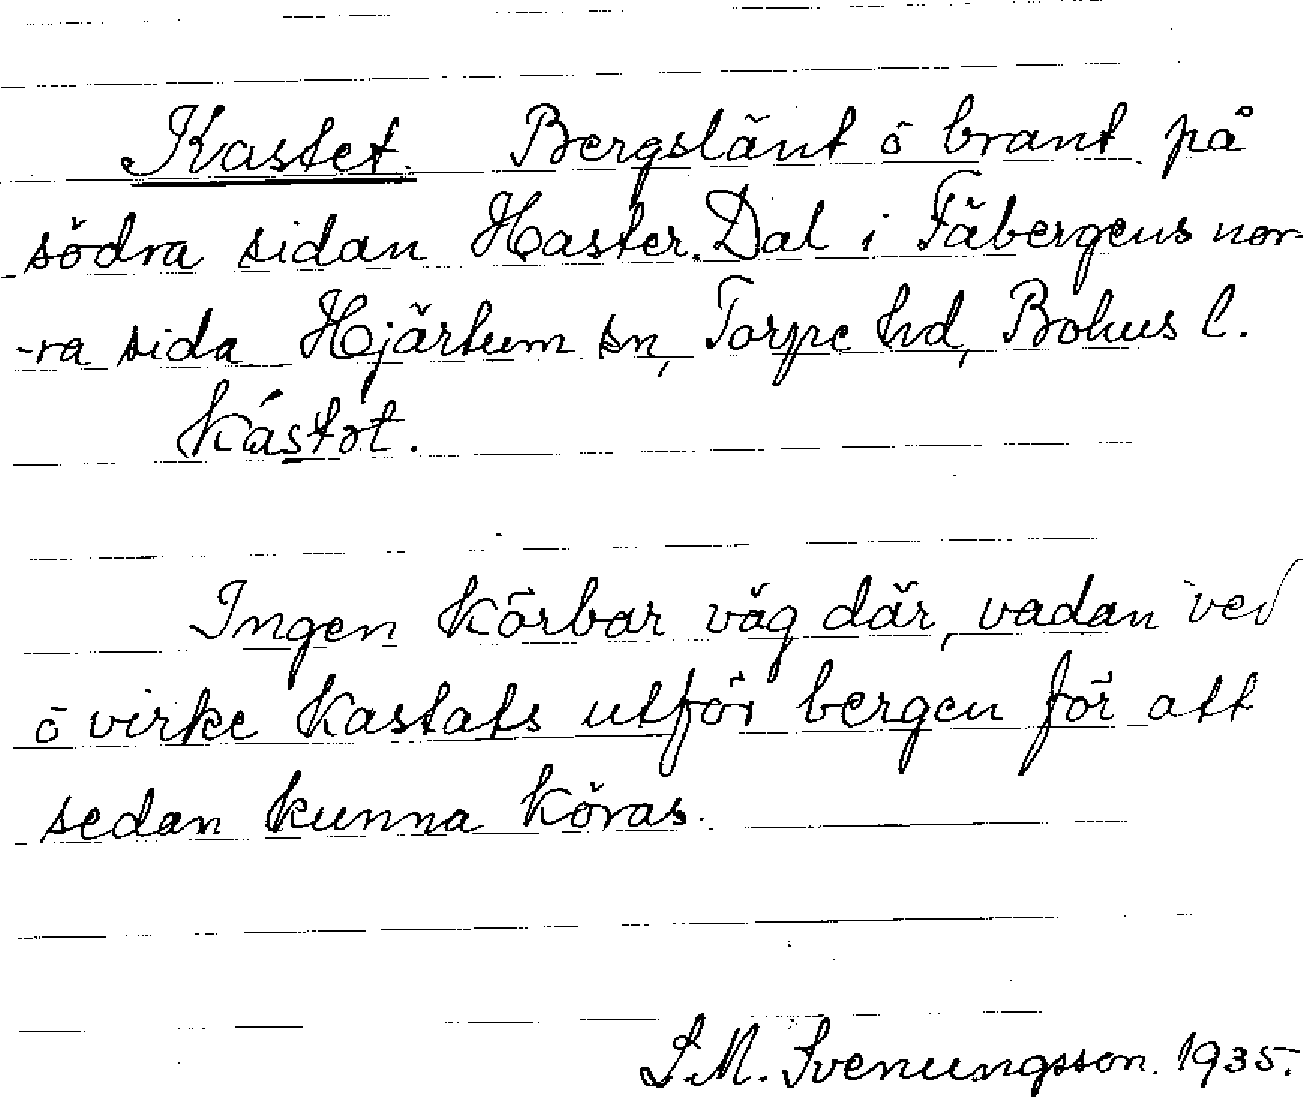 Kastet. Bergslänt ō brant på
södra sidan Haster. Dal i Fäbergens nor-
-ra sida Hjärtum sn, Torpe hd, Bohus l.
Kástot.
Ingen körbar väg där, vadan ved
ō virke kastats utför bergen för att
sedan kunna köras.
S.M. Svenungsson. 1935.